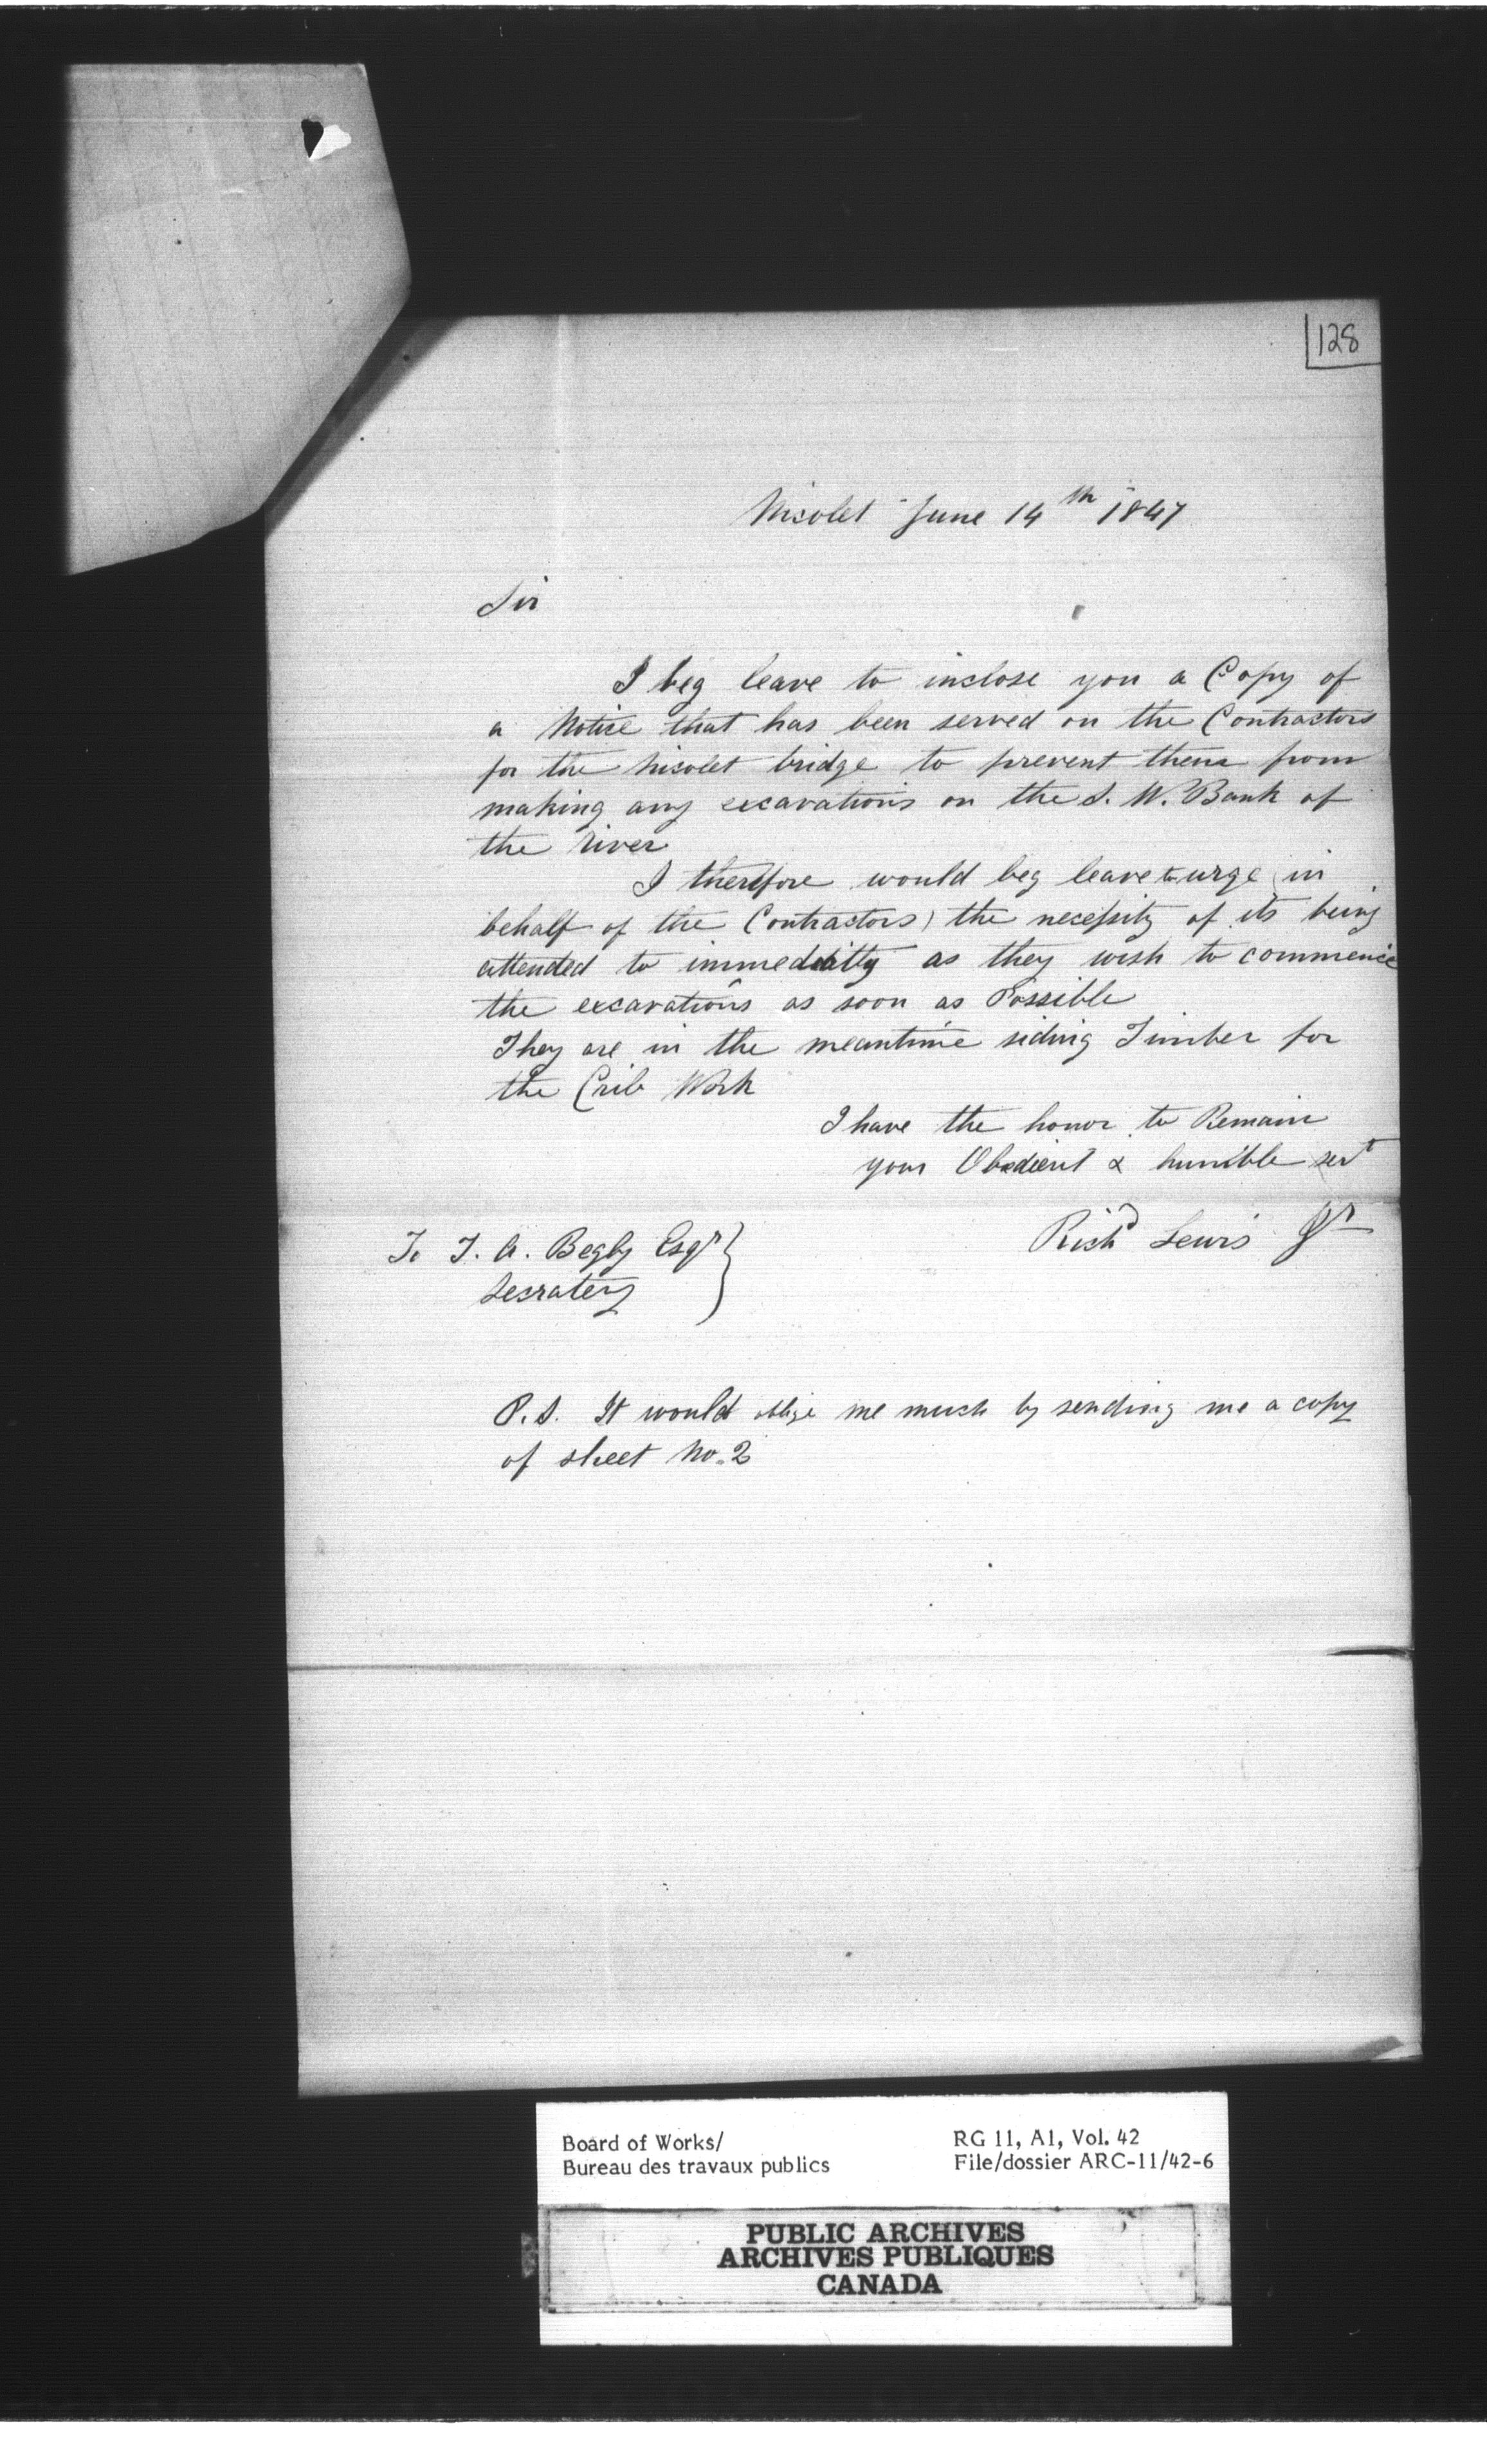 128
Nicolet June 14th 1847
Sir
I beg leave to inclose you a Copy of
a Notice that has been served on the Contractors
for the Nicolet bridge to prevent them from
making any excavations on the S. W. Bank of
the river
I therefore would beg leave to urge (in
behalf of the Contractors) the necessity of its being
attended to immediatly as they wish to commence
the excavations as soon as Possible
They are in the meantime siding Timber for
the Crib Work
I have the honor to Remain
your Obedient & humble servt
Richd Lewis Jr
To T. A. Begly Esqr
Secratery
P.S. It would oblige me much by sending me a copy
of sheet No. 2
Board of Works/
Bureau des travaux publics
RG 11, A1, Vol. 42
File/dossier ARC-11/42-6
PUBLIC ARCHIVES
ARCHIVES PUBLIQUES
CANADA